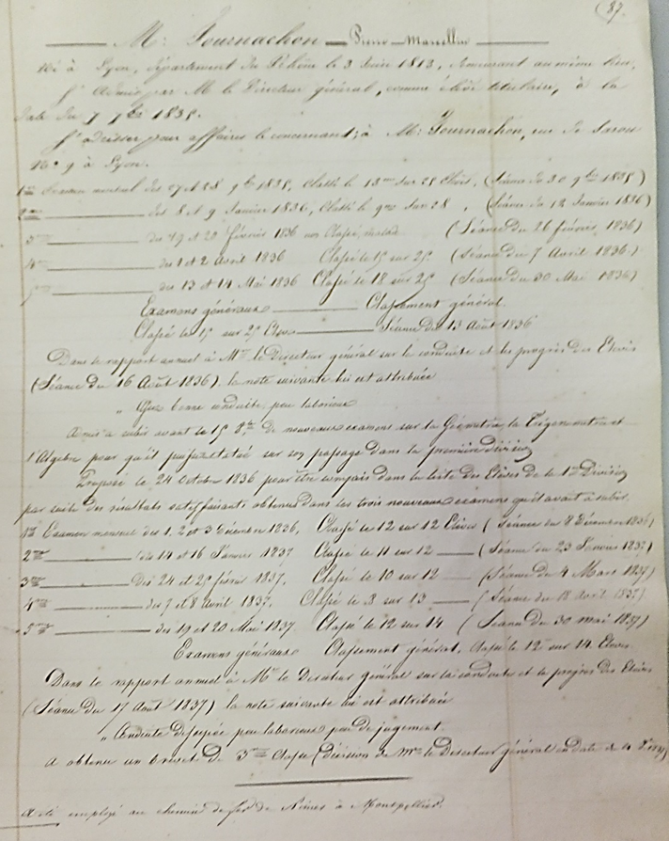 (87.
M: Tournachon Pierre Marcellin
Né à Lyon, département du Rhône le 3 1813, demeurant au même lieu,
Admis par M le Directeur général, comme élève titulaire, à la
date du 7 7bre 1835.
S'adresser pour affaires le concernant, à M: Tournachon, rue de
No 9 à Lyon.
1er Examen mensuel des 27 et 28 9bre 1835, Classé le 13me sur 28 Elèves, (Séance du 30 9bre 1835)
2me des 8 et 9 Janvier 1836, Classé le 9me sur 28, (Séance du 12 Janvier 1836)
3me du 19 et 20 Février 1836 non Classé, malade (Séance du 26 février, 1836)
4me du 1 et 2 avril 1836 Classé le 15 sur 25 (Séance du 7 Avril 1836)
5me du 13 et 14 Mai 1836 Classé le 18 sur 25 (Séance du 30 Mai 1836)
Examens généraux Classement général
Classé le 15 sur 25 Elèves Séance du 13 Août 1836
Dans le rapport annuel à Mr le Directeur général sur la conduite et les progrès des Elèves
(Séance du 16 Août 1836), la note suivante lui est attribuée
" Assez bonne conduite, peu laborieux
Admis à subir avant le 15 de nouveaux examens sur la Géométrie, la Trigonométrie et
l'Algèbre pour qu'il put être statué sur son passage dans la première division
Proposé le 24 octobre 1836 pour être compris dans la liste des Elèves de la 1re Division
par suite des résultats satisfaisants obtenus dans les trois nouveaux examens qu'il avait à subir.
1er Examen mensuel des 1, 2 et 3 Décembre 1836, Classé le 12 sur 12 Elèves (Séance du 8 Décembre 1836)
2me des 14 et 16 Janvier 1837 Classé le 11 sur 12 (Séance du 23 Janvier 1837)
3me Des 24 et 25 févrer 1837. Classé le 10 sur 12 (Séance du 4 Mars 1837)
4me des 7 et 8 avril 1837. Classé le 8 sur 13 (Séance du 18 avril 1837)
5me des 19 et 20 Mai 1837. Classé le 12 sur 14 (Séance du 30 mai 1837)
Examens généraux Classement général, Classé le 12 sur 14 Elèves
Dans le rapport annuel à Mr le Directeur général sur la conduite et les progrès des Elèves
(Séance du 17 Août 1837) la note suivante lui est attribuée
" Conduite dissipée peu laborieux peu de jugement.
A obtenu un brevet de 3me Classe (décision de Mr le Directeur général en date du 4
A été employé au chemin de fer de Nîmes à Montpellier.